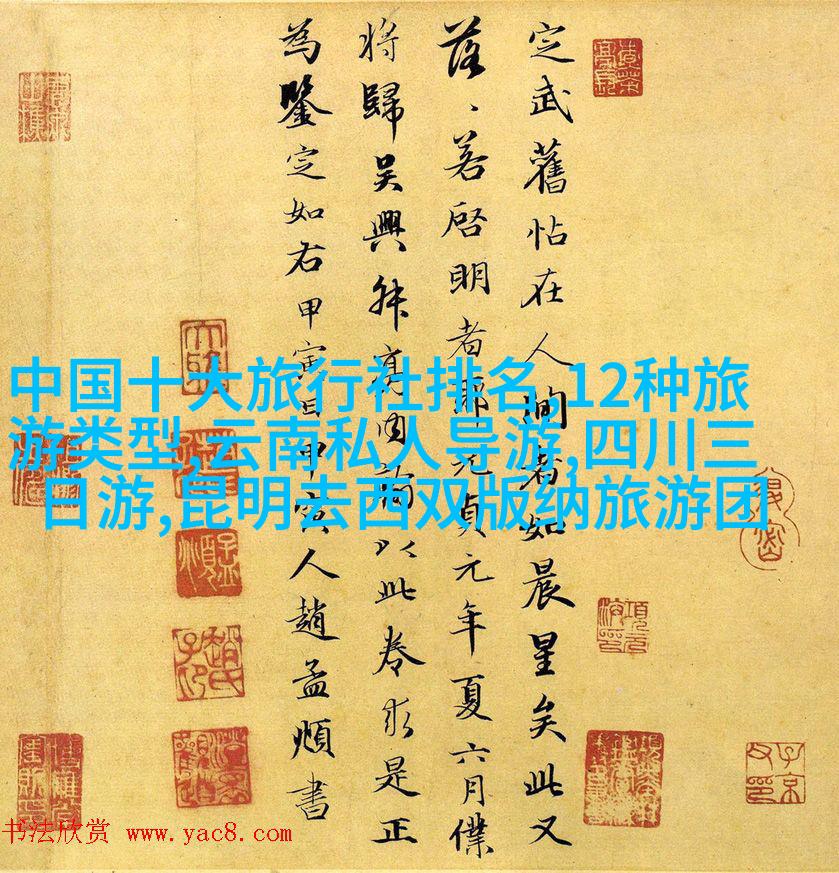 定武舊帖在人間者如晨星矣此又
落、若啓明者耶元貞元年夏六月僕
将歸吴興内翰以此卷求是正
為鑒定如右甲寅日甲寅人趙孟頫書
中国十大旅行社排名,12种旅
游类型,云南私人导游,四川三
日游,昆明去西双版纳旅游团
书法欣赏 www.yac8.com